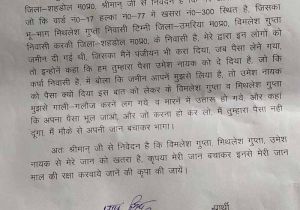 जिला-शहडोल म0प्र0. श्रीमान् जी से निवेदन है कि
जो कि वार्ड न0-17 हल्का न0-77 मे खसरा न0-300 स्थित है,
भू-भाग मिथलेश गुप्ता निवासी टिम्नी जिला-उमरिया म0प्र0, विमलेश गुप्ता
निवासी करकी जिला-शहडोल म0प्र0, के निवासी है. मेरे द्वारा इन लोगों को
जमीनी दी गई थी, जिसका मैने पंजीयन भी करा दिया. जब पैसा लेने गया,
तो इन्होने कहा कि हम तुम्हारा पैसा उमेश नायक को दे दिया है, जो कि
कर्पा निवासी है, मे बोला कि जमीन आपने मुझसे लिया है, तो उमेश नायक
को पैसा क्यो दिया इस बात को लेकर के विमलेश गुप्ता व मिथलेश गुप्ता
मुझसे गाली-गलौज करने लग गये, व मारने मे उतारु हो गये, और कहा
कि अपना पैसा भूल जाओ, और जो करना हो कर लो, मै तुम्हारा पैसा नही
दूंगा, मै मौके से अपनी जान बचाकर भागा।
अतः श्रीमान् जी से निवेदन है कि विमलेश गुप्ता, मिथलेश गुप्ता, उमेश
नायक से मेरे जान को खतरा है, कृपया मेरी जान बचाकर इनसे मेरी जान
माल की रक्षा करवाये जाने की कृपा की जाये।
प्रार्थी